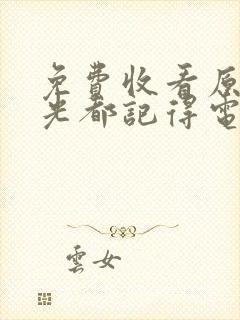 免費收看原
光都記得電
雲女